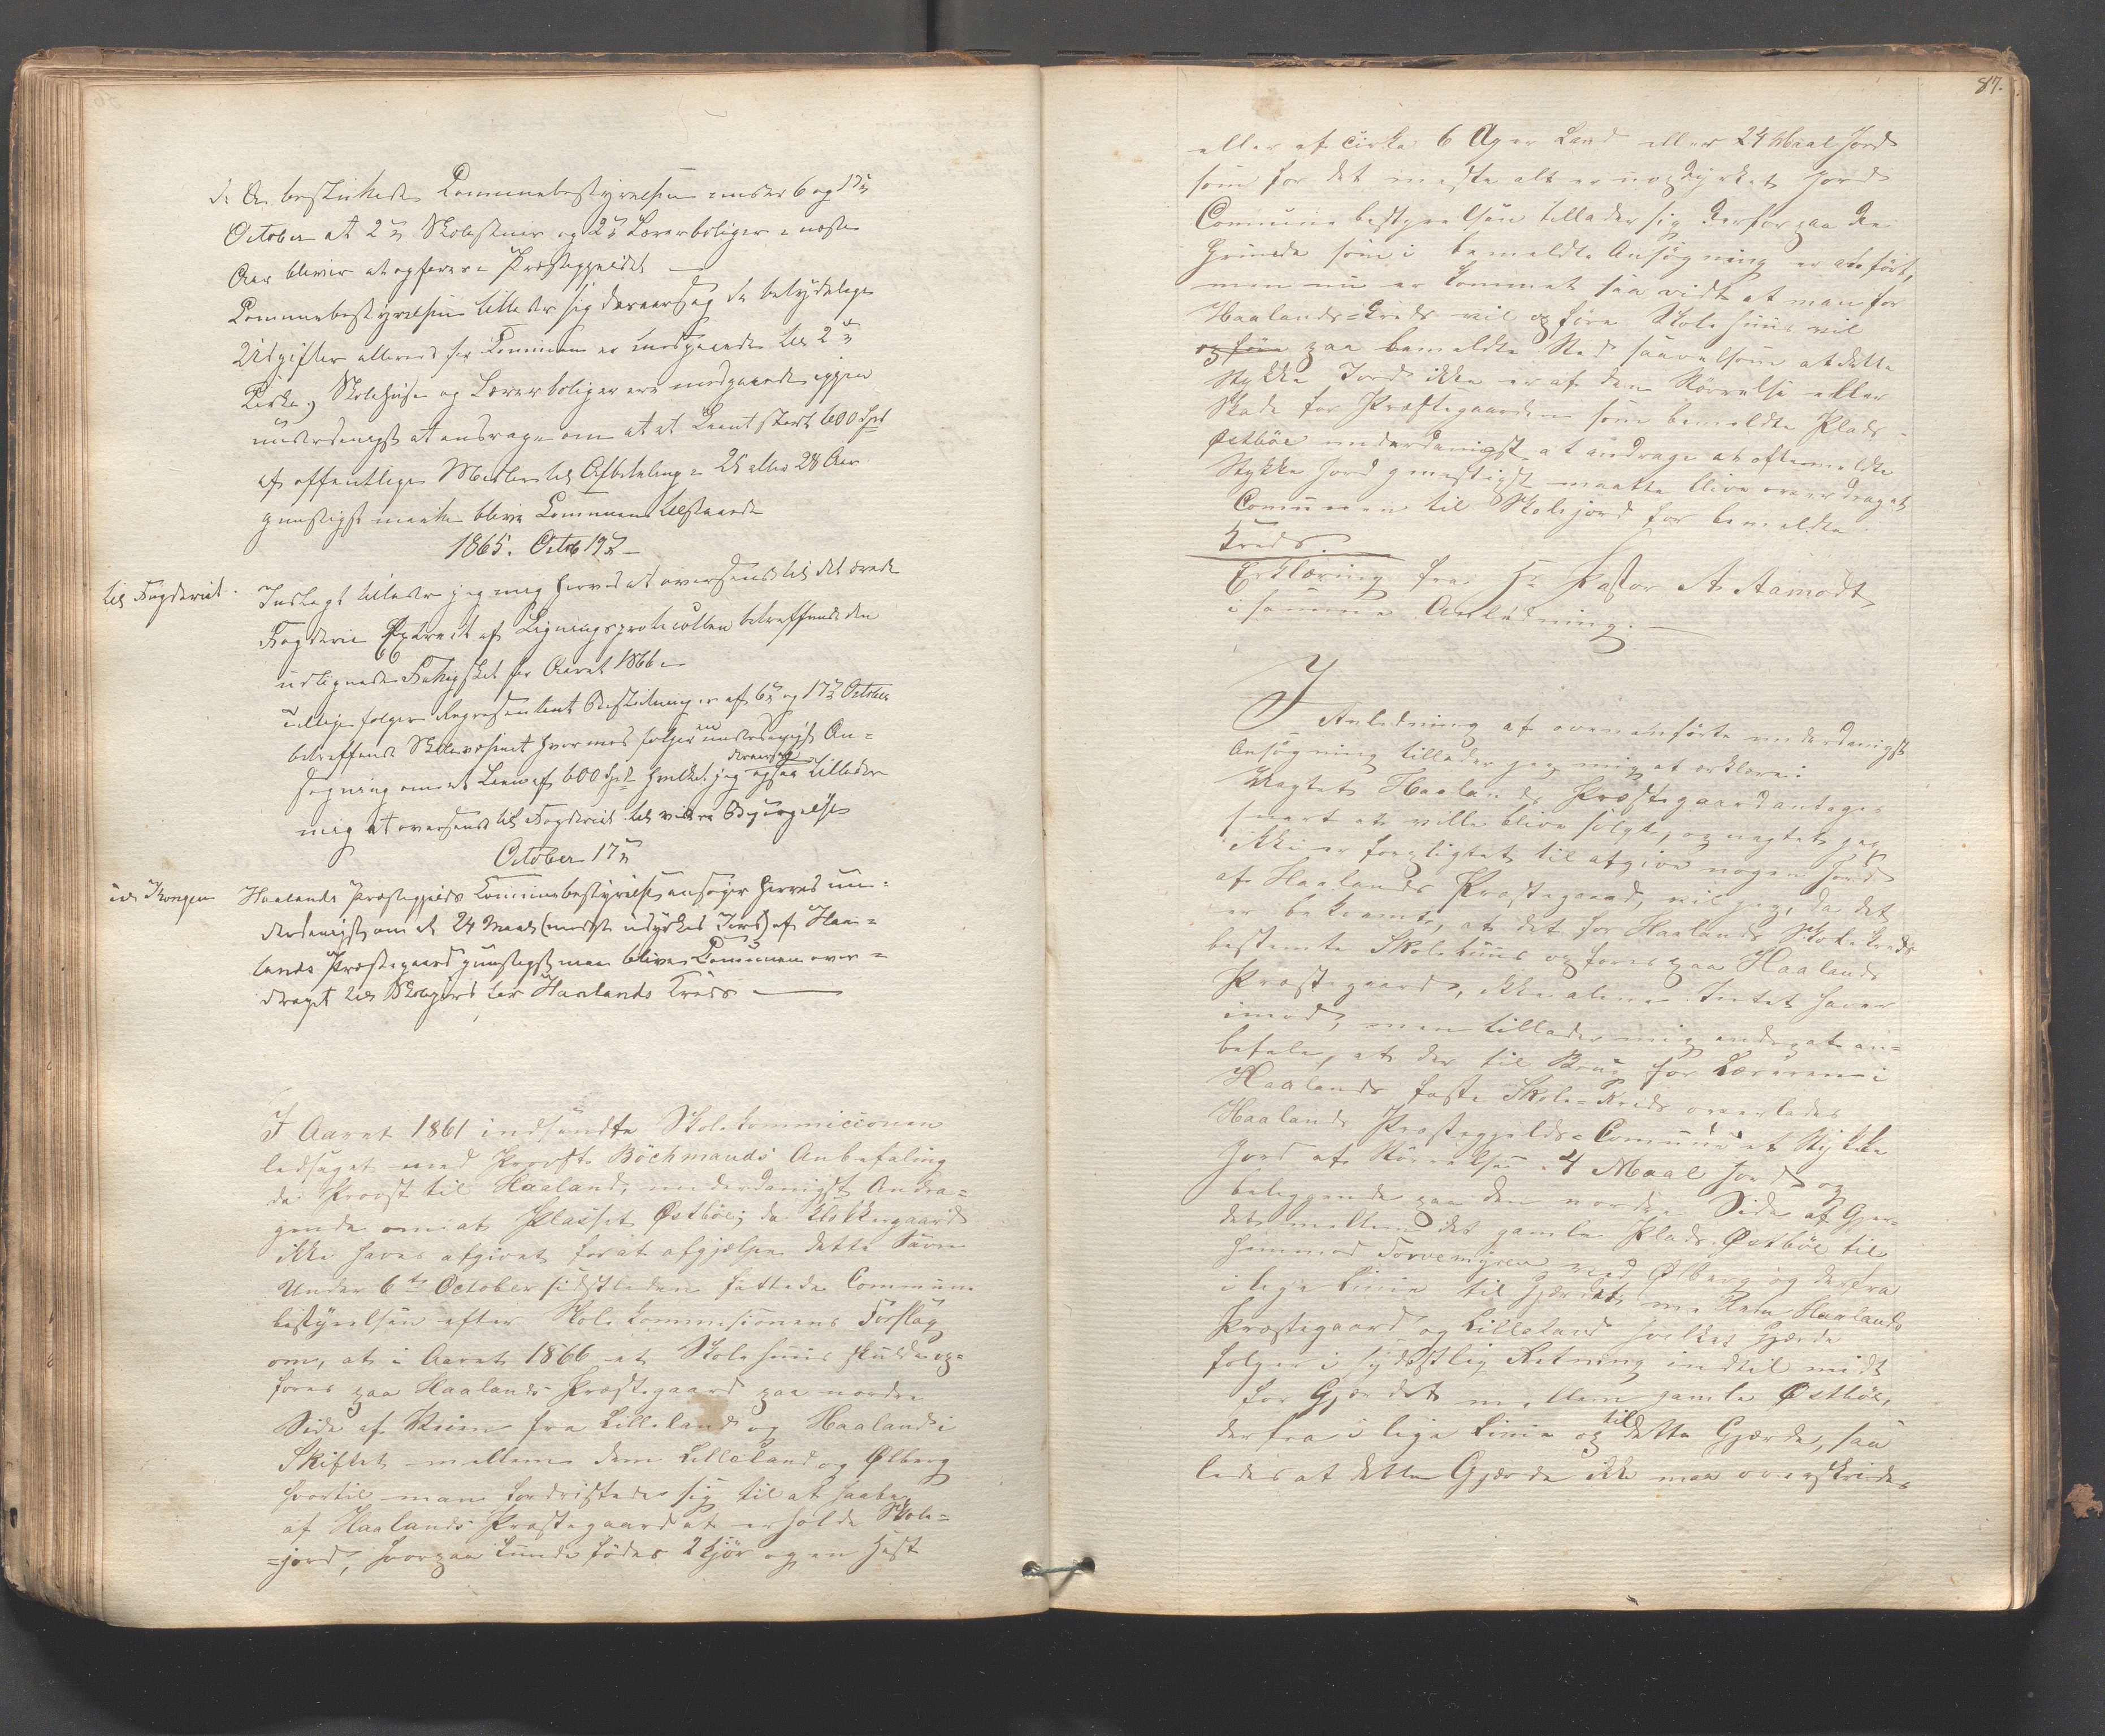 de Aa besluttede Commünebestyrelsen under 6 og 17de
October at 2de Skolestuer og 2de Lærerboliger i næste
Aar bliver at opføres i Præstegjeldet —
Commünebestyrelsen tillader sig derunder de betydelige
Udgifter allerede for Commünen er medgaaende til 2de
Kirker, Skolehuse og Lærerboliger ere medgaaende igjen
underdanigst at andrage om at et Laan stort 600 Spd
af offentlige Midler til Afbetaling i 25 eller 28 Aar
gunstigst maatte blive Commünen tilstaaede
1865. Octob 19de —
til Fogderiet.
Indlagt tillader jeg mig herved at oversende til det ærede
Fogderie Extract af Ligningsprotocollen betreffende den
udlignede Fattigskat for Aaret 1866 —
Tillige følger Representant Beslutninger af 6te og 17de October
betreffende Skolevæsenet hvormed følger en underdanigst An=
søgning om et Laan af 600 Spd hvilket jeg ogsaa tillader
mig at oversende til Fogderiet til videre Besørgelse
October 17de
til Kongen
Haalands Præstegjelds Commünebestyrelse ansøger herved un=
derdanigst om at 24 Maal (meest udyrket Jord) af Haa=
lands Præstegaard gunstigst maa blive Commünen over=
draget til Skolejord for Haalands Kreds —
I Aaret 1861 indsendte Skolekommicionen
ledsaget med Provst Böchmands Anbefaling
da Provst til Haaland, underdanigst Andra=
gende om at Pladset Østböe, da Klokkergaard
ikke haves afgivet for at afhjælpe dette Savn
Under 6te October sidstleden fattede Commune
bestyrelsen efter Skolekommisionens Forslag
om, at i Aaret 1866 et Skolehuus skulde op=
føres paa Haalands Præstegaard paa nordre
Side af Veien fra Lilleland og Haaland i
Skiftet mellem dem Lilleland og Ølberg
hvortil man fordristede sig til at haabe
af Haalands Præstegaard at erholde Skole=
=jord, hvorpaa kunde födes 2 Kjör og en Hest
87.
eller af cirka 6 Ager Land eller 24 Maal Jord
som for det meste alt er uopdyrket Jord
Commune bestyrelsen tillader sig derfor paa de
Grunde som i bemeldte Ansøgning er anfört,
men nu er kommet saa vidt at man for
Haalands=Kreds vil opføre Skolehuus vil
opføre paa bemeldte Sted saavelsom at dette
Stykke Jord ikke er af den Störrelse eller
Skade for Præstegaarden som bemeldte Plads
Østböe underdanigst at andrage at oftemeldte
Stykke Jord gunstigst maatte blive overdraget
Communen til Skolejord for bemeldte
Kreds.
Erklæring fra Hr Pastor A. Aamodt
i samme Anledning. —
I Anledning af ovenanförte underdanigst
Ansøgning tillader jeg mig at erklære:
Uagtet Haalands Præstegaard antages
snart at ville blive solgt, og uagtet jeg
ikke er forpligtet til at give nogen Jord
af Haalands Præstegaard, vil jeg, da det
er bekjendt, at det for Haalands Skolekreds
bestemte Skolehuus opføres paa Haalands
Præstegaard, ikke alene Intet haver
imod, men tillader mig endog at an=
befale, at der til Brug for Læreren i
Haalands faste Skole=Kreds overlades
Haalands Præstegjelds=Comune et Stykke
Jord af Störrelse 4 Maal Jord og
beliggende paa den nordre Side af Gjær=
det mellem det gamle Plads Østböe til
henimod Torvemyren ved Ølberg og derfra
i lige Linie til Gjærdet mellem Haalands
Præstegaard og Lilleland hvilket Gjærde
følger i sydostlig Retning indtil midt
for Gjærdet mellem gamle Østböe,
derfra i lige Linie op til dette Gjærde, saa
ledes at dette Gjærde ikke maa overskrides